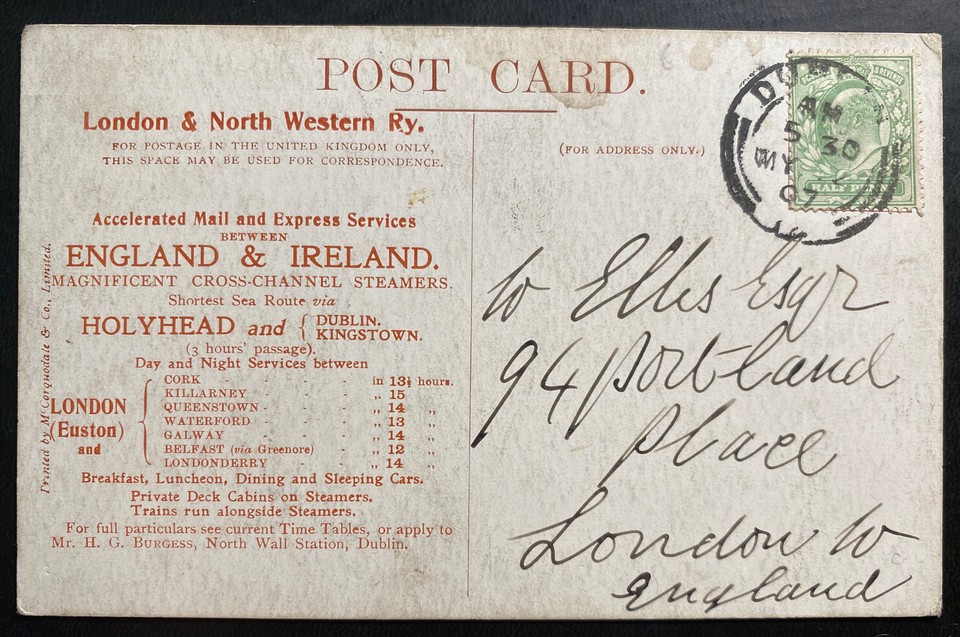 POST CARD.
London & North Western Ry.
FOR POSTAGE IN THE UNITED KINGDOM ONLY,
THIS SPACE MAY BE USED FOR CORRESPONDENCE.
Accelerated Mail and Express Services
BETWEEN
ENGLAND & IRELAND.
MAGNIFICENT CROSS-CHANNEL STEAMERS.
Shortest Sea Route via
HOLYHEAD and { DUBLIN.
KINGSTOWN.
(3 hours' passage).
Day and Night Services between
LONDON
(Euston)
and
CORK - - - - in 13½ hours.
KILLARNEY - - - - „ 15
QUEENSTOWN - - - „ 14 „
WATERFORD - - - - „ 13 „
GALWAY - - - - „ 14 „
BELFAST (via Greenore) - - „ 12 „
LONDONDERRY - - - „ 14 „
Breakfast, Luncheon, Dining and Sleeping Cars.
Private Deck Cabins on Steamers.
Trains run alongside Steamers.
For full particulars see current Time Tables, or apply to
Mr. H. G. BURGESS, North Wall Station, Dublin.
Printed by McCorquodale & Co., Limited.
(FOR ADDRESS ONLY.)
W Ellis Esqr
94 Portland
Place
London W
England
DUBLIN
AM
5 30
MY
07
HALF PENNY